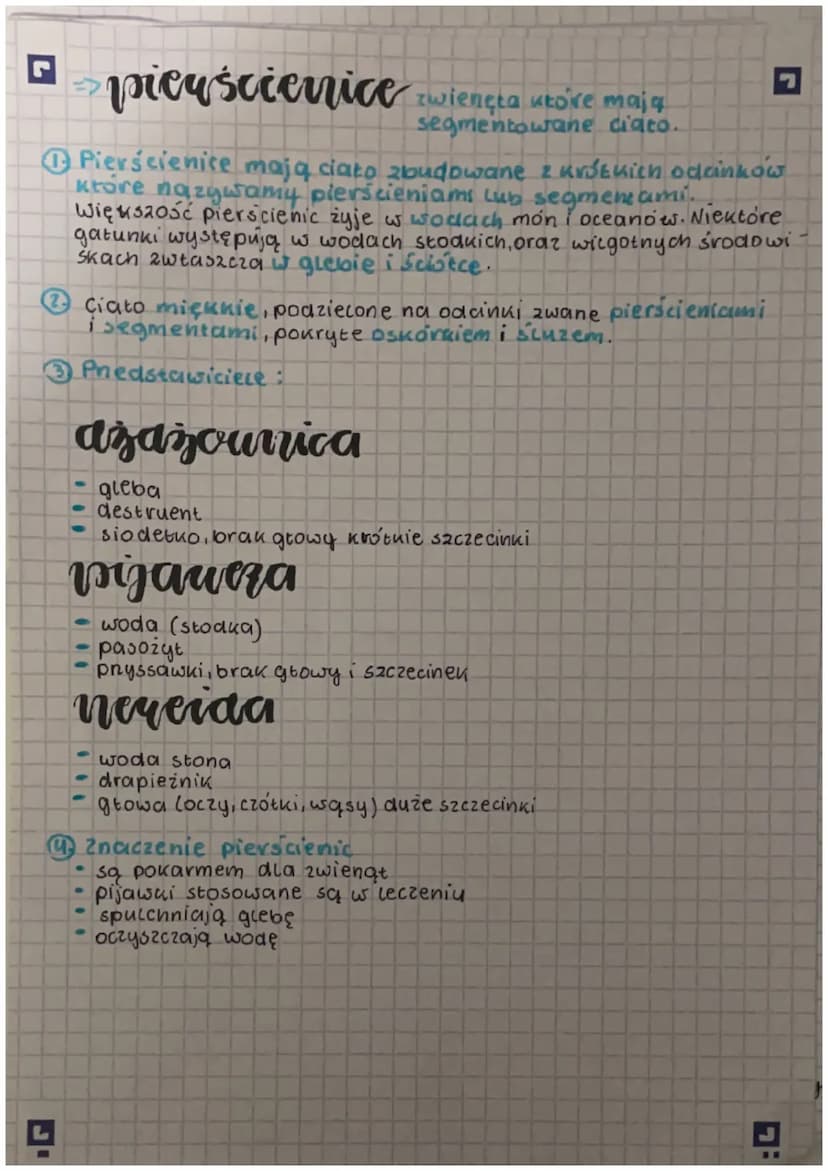 => pierścienice zwierzęta które mają
segmentowane ciało.
1. Pierścienice mają ciało zbudowane z krótkich odcinków
które nazywamy pierścieniami lub segmentami.
Większość pierścienic żyje w wodach mórz i oceanów. Niektóre
gatunki występują w wodach słodkich, oraz wilgotnych środowi-
skach zwłaszcza w glebie i ściółce.
2. Ciało miękkie, podzielone na odcinki zwane pierścieniami
i segmentami, pokryte oskórkiem i śluzem.
3. Przedstawiciele:
dżdżownica
- gleba
- destruent
- siodełko, brak głowy krótkie szczecinki
pijawka
- woda (słodka)
- pasożyt
- przyssawki, brak głowy i szczecinek
nereida
- woda słona
- drapieżnik
- głowa (oczy, czółki, wąsy) duże szczecinki
4. Znaczenie pierścienic
• są pokarmem dla zwierząt
• pijawki stosowane są w leczeniu
• spulchniają glebę
• oczyszczają wodę